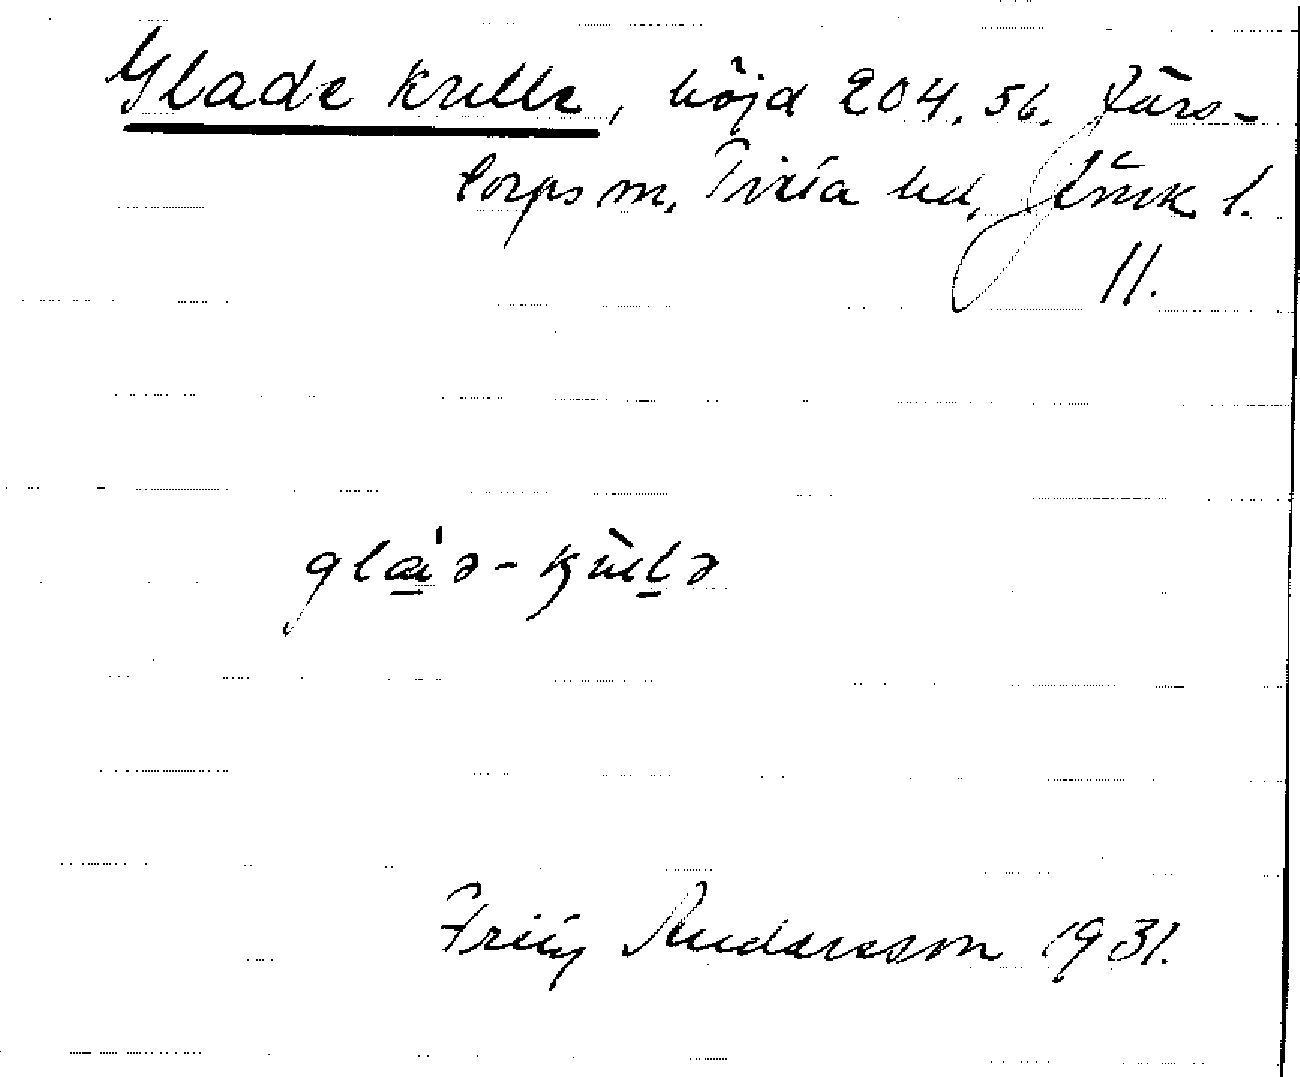 Glade kulle, höjd 204.56. Järs-
torps m, Tveta hd, Jönk l.
11.
glɑ́'ə-kùlə
Fritz Andersson 1931.